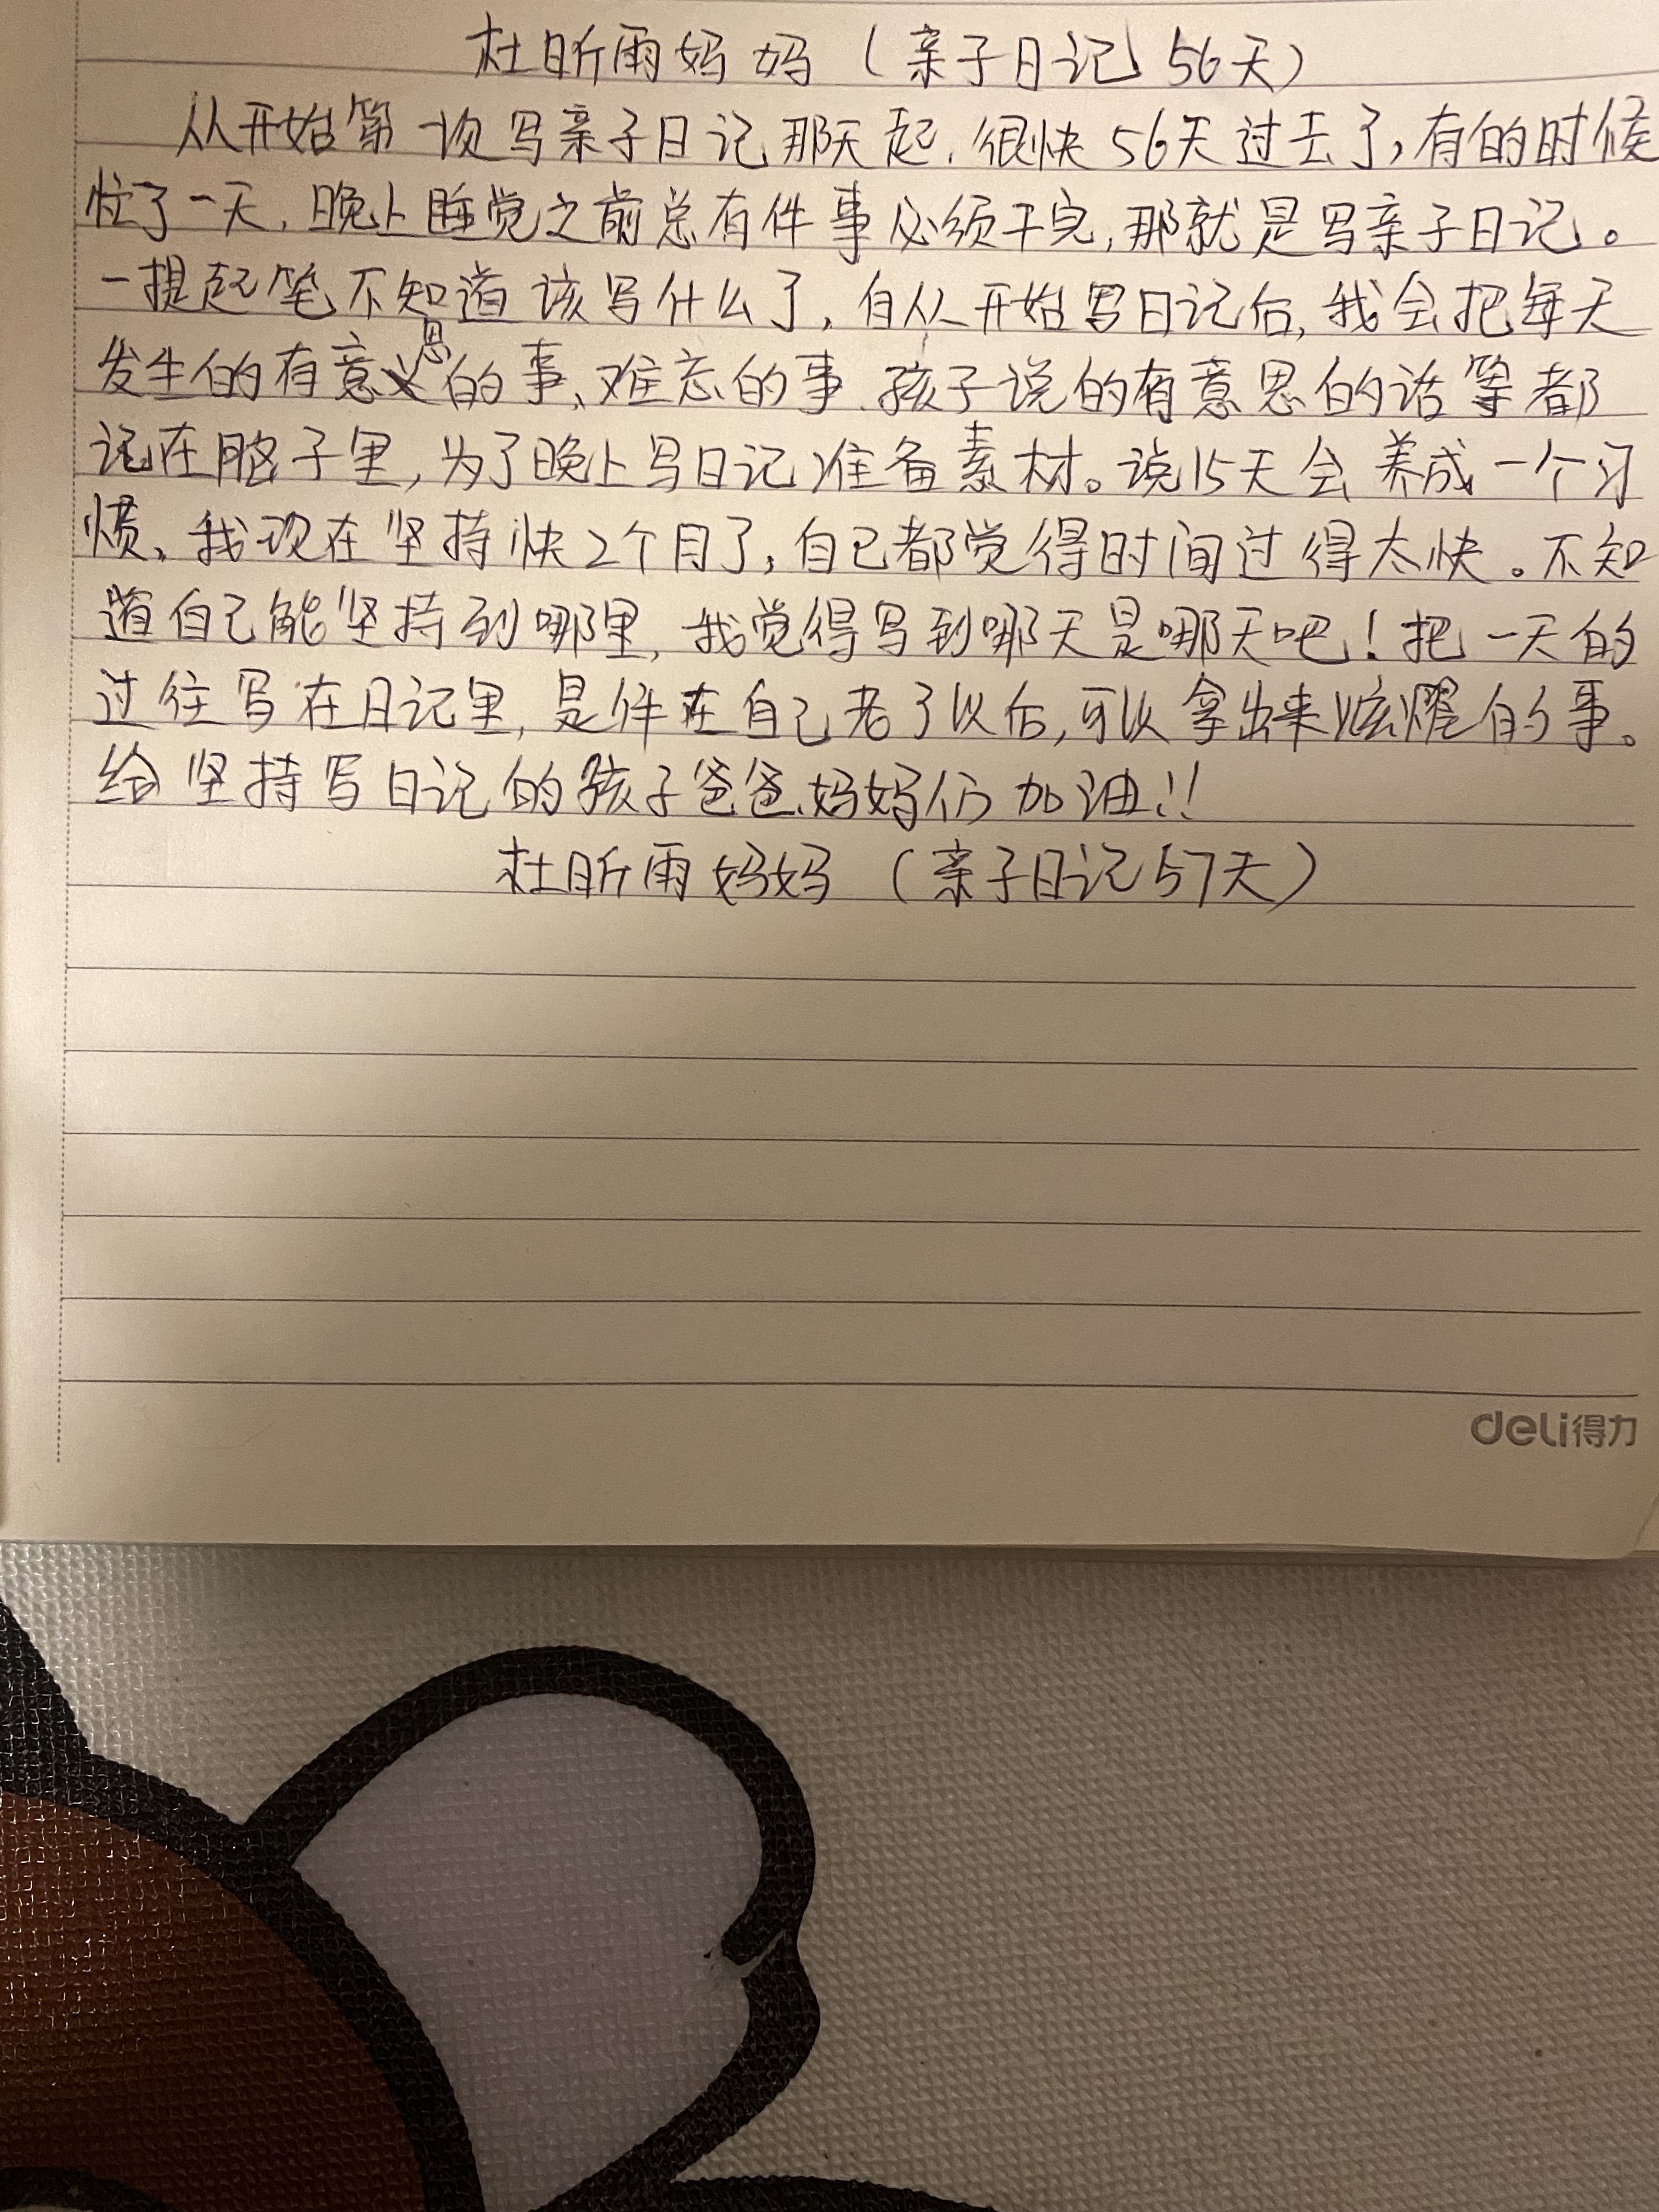 杜昕雨妈妈（亲子日记56天）
从开始第一次写亲子日记那天起，很快56天过去了，有的时候
忙了一天，晚上睡觉之前总有件事必须干完，那就是写亲子日记。
一提起笔不知道该写什么了，自从开始写日记后，我会把每天
发生的有意思的事、难忘的事、孩子说的有意思的话等都
记在脑子里，为了晚上写日记准备素材。说15天会养成一个习
惯，我现在坚持快2个月了，自己都觉得时间过得太快。不知
道自己能坚持到哪里，我觉得写到哪天是哪天吧！把一天的
过往写在日记里，是件在自己老了以后，可以拿出来炫耀的事。
给坚持写日记的孩子爸爸、妈妈们加油！！
杜昕雨妈妈（亲子日记57天）
deli得力